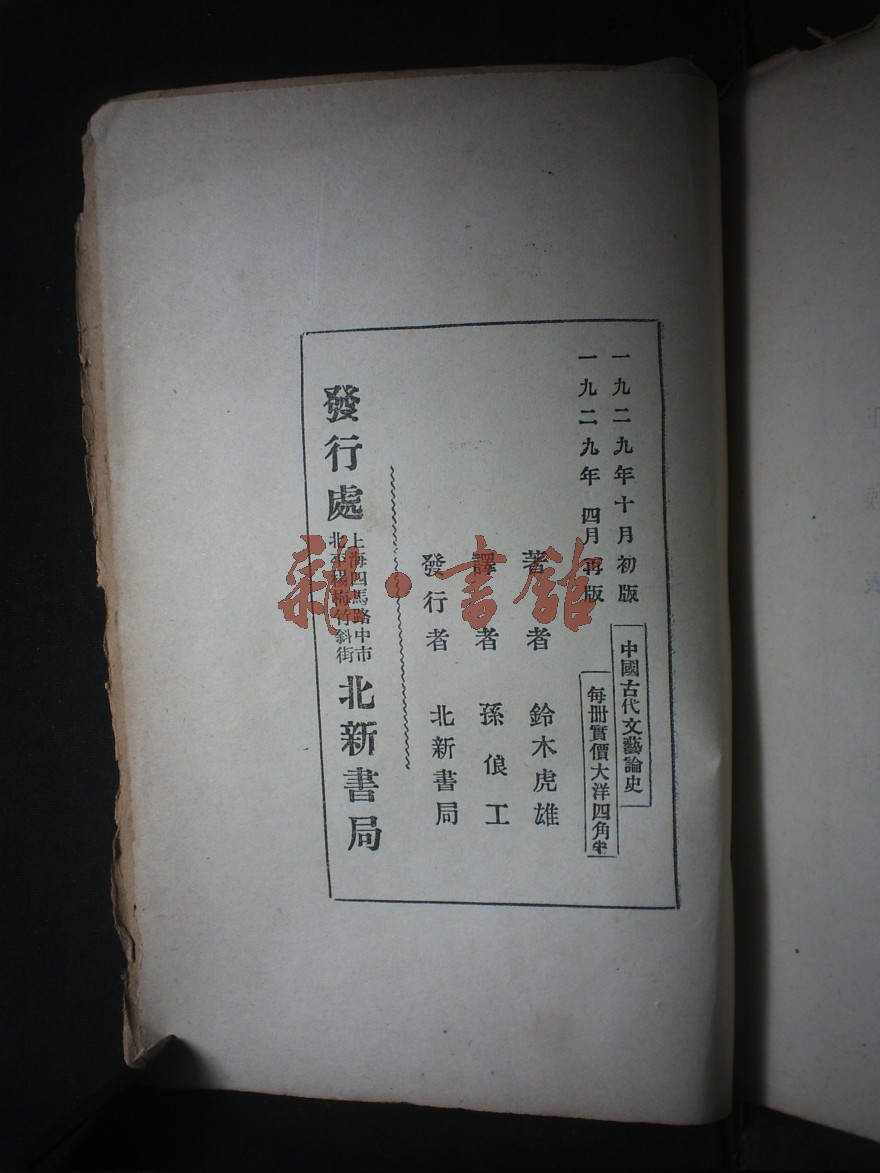 一九二九年十月初版
一九二九年四月再版
中國古代文藝論史
每冊實價大洋四角半
著者 鈴木虎雄
譯者 孫俍工
發行者 北新書局
發行處 上海四馬路中市 北平楊梅竹斜街 北新書局
雜·書館